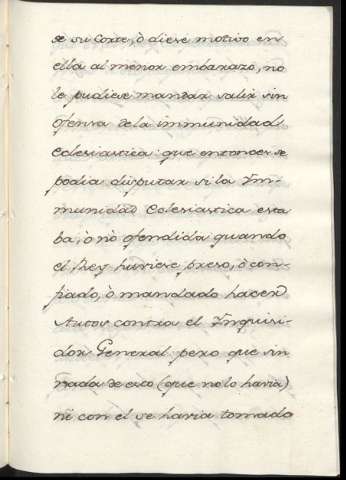 se su Corte, ò diese motivo en
ella al menor embarazo, no
le pudiese mandar salir sin
ofensa de la immunidad
Eclesiastica: que entonces se
podia disputar si la Ym-
munidad Eclesiastica esta
ba, ò nò ofendida quando
el Rey huviese preso, ò con-
finado, ò mandado hacer
Autos contra el Ynquisi-
dor General, pero que sin
nada de esto (que no lo havia)
ni con el se havia tomado